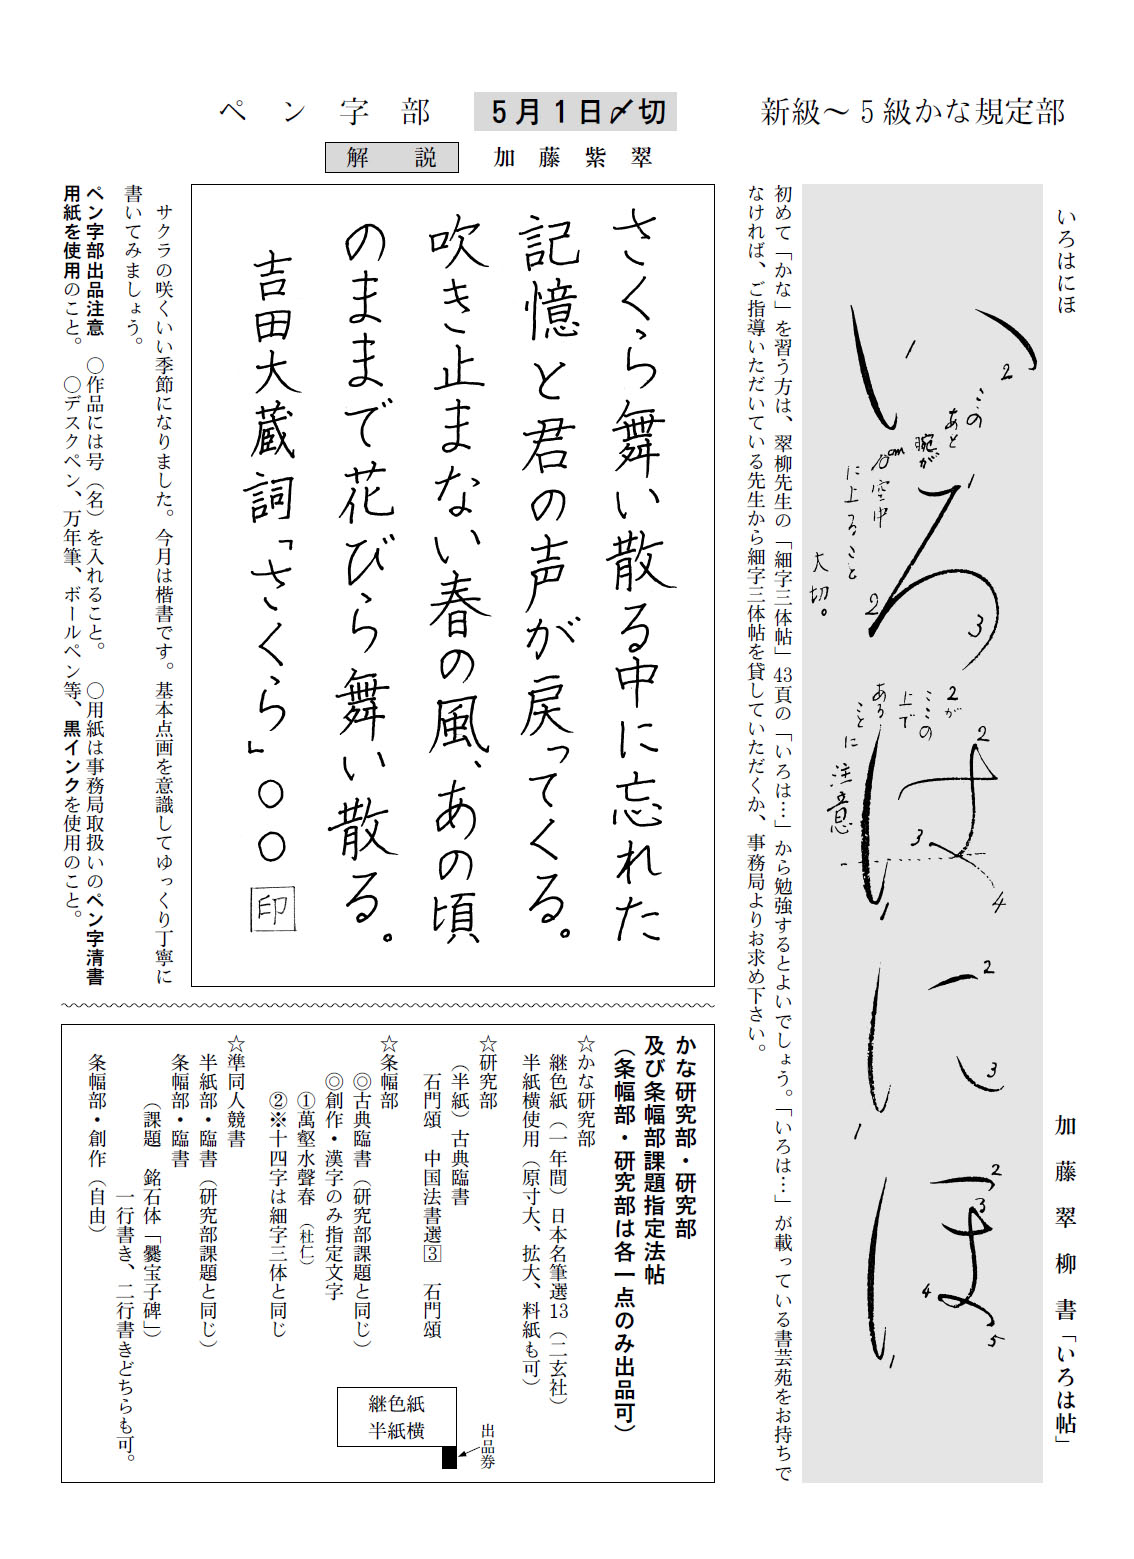 新級～５級かな規定部
いろはにほ
加藤翠柳書「いろは帖」
いろはにほ
1
2
このあと
腕が
10cm空中
に上ること
大切。
1
2
3
2が
ここの
上で
ある
ことに
注意
2
3
4
1
2
3
1
2
3
4
5
1
初めて「かな」を習う方は、翠柳先生の「細字三体帖」43頁の「いろは…」から勉強するとよいでしょう。「いろは…」が載っている書芸苑をお持ちで
なければ、ご指導いただいている先生から細字三体帖を貸していただくか、事務局よりお求め下さい。
ペン字部
５月１日〆切
解説
加藤紫翠
さくら舞い散る中に忘れた
記憶と君の声が戻ってくる。
吹き止まない春の風、あの頃
のままで花びら舞い散る。
吉田大蔵詞「さくら」○○
印
サクラの咲くいい季節になりました。今月は楷書です。基本点画を意識してゆっくり丁寧に
書いてみましょう。
ペン字部出品注意　○作品には号（名）を入れること。　○用紙は事務局取扱いのペン字清書
用紙を使用のこと。　○デスクペン、万年筆、ボールペン等、黒インクを使用のこと。
かな研究部・研究部
及び条幅部課題指定法帖
（条幅部・研究部は各一点のみ出品可）
☆かな研究部
継色紙（一年間）日本名筆選13（二玄社）
半紙横使用（原寸大、拡大、料紙も可）
☆研究部
（半紙）古典臨書
石門頌　中国法書選3　石門頌
☆条幅部
◎古典臨書（研究部課題と同じ）
◎創作・漢字のみ指定文字
①萬壑水聲春（杜仁）
②※十四字は細字三体と同じ
☆準同人競書
半紙部・臨書（研究部課題と同じ）
条幅部・臨書
（課題　銘石体「爨宝子碑」）
一行書き、二行書きどちらも可。
条幅部・創作（自由）
継色紙
半紙横
出品券